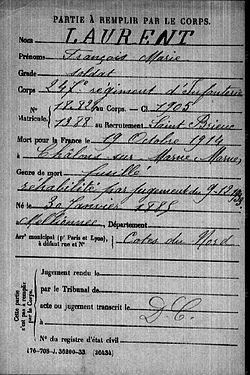 PARTIE À REMPLIR PAR LE CORPS.
Nom LAURENT
Prénoms François Marie
Grade soldat
Corps 247e régiment d'Infanterie
N° 18.826 au Corps. — Cl. 1905
Matricule. 1388 au Recrutement Saint Brieuc
Mort pour la France le 19 Octobre 1914
à Châlons sur Marne, Marne,
Genre de mort fusillé
réhabilité par jugement du 9.12.33
Né le 30 Janvier 1885
Mellionnec, Département
Arrt municipal (pr Paris et Lyon), à défaut rue et N° Cotes du Nord
Cette partie n'est pas à remplir par le Corps.
Jugement rendu le
par le Tribunal de
acte ou jugement transcrit le D.C.
à
N° du registre d'état civil
(26434)